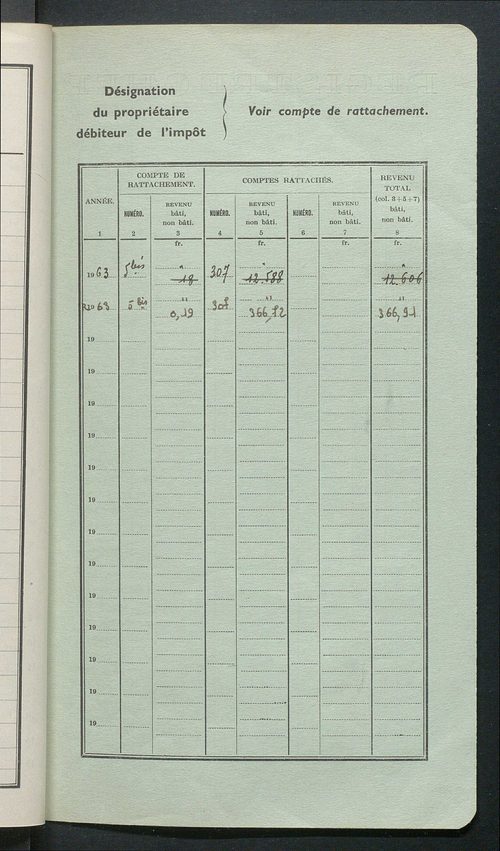 Désignation
du propriétaire
débiteur de l'impôt
Voir compte de rattachement.
ANNÉE. COMPTE DE RATTACHEMENT. COMPTES RATTACHÉS. REVENU TOTAL
(col. 3+5+7)
NUMÉRO. REVENU NUMÉRO. REVENU NUMÉRO. REVENU bâti,
bâti, bâti, bâti, non bâti.
non bâti. non bâti. non bâti.
1 2 3 4 5 6 7 8
fr. fr. fr. fr.
" " "
1963 5 bis 18 307 12.588 12.606
" " "
63 5 bis 0,19 307 366,72 366,91
19
19
19
19
19
19
19
19
19
19
19
19
19